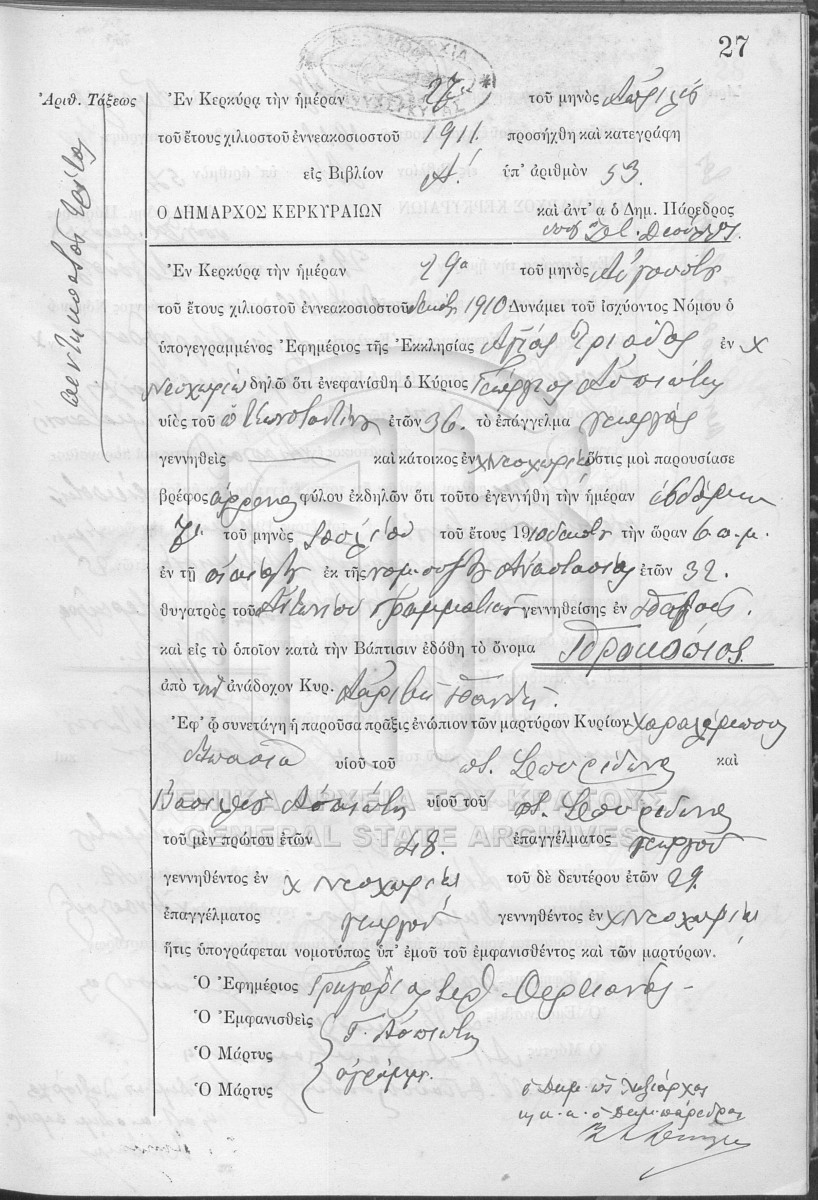 27
Ἀριθ. Τάξεως
πεντηκοστὸς τρίτος
Ἐν Κερκύρᾳ τὴν ἡμέραν 27 τοῦ μηνὸς Ἀπριλίου
τοῦ ἔτους χιλιοστοῦ ἐννεακοσιοστοῦ 1911 προσήχθη καὶ κατεγράφη
εἰς Βιβλίον Α! ὑπ' ἀριθμὸν 53.
Ο ΔΗΜΑΡΧΟΣ ΚΕΡΚΥΡΑΙΩΝ καὶ ἀντ' α ὁ Δημ. Πάρεδρος
Ἐν Κερκύρᾳ τὴν ἡμέραν 29α τοῦ μηνὸς Αὐγούστου
τοῦ ἔτους χιλιοστοῦ ἐννεακοσιοστοῦ δεκάτου 1910 Δυνάμει τοῦ ἰσχύοντος Νόμου ὁ
ὑπογεγραμμένος Ἐφημέριος τῆς Ἐκκλησίας Ἁγίας Τριάδος ἐν χ
Νεοχωρίῳ δηλῶ ὅτι ἐνεφανίσθη ὁ Κύριος Γεώργιος Ἀσπιώτης
υἱὸς τοῦ Κωνσταντίνου ἐτῶν 36. τὸ ἐπάγγελμα γεωργὸς
γεννηθεὶς καὶ κάτοικος ἐν χ Νεοχωρίῳ ὅστις μοὶ παρουσίασε
βρέφος ἄρρενος φύλου ἐκδηλῶν ὅτι τοῦτο ἐγεννήθη τὴν ἡμέραν ἑβδόμην
7 τοῦ μηνὸς Ἰουλίου τοῦ ἔτους 1910 δεκάτου τὴν ὥραν 6 π.μ.
ἐν τῇ οἰκίᾳ ἐκ τῆς νομ. συζ. Ἀναστασίας ἐτῶν 32.
θυγατρὸς τοῦ Ἀντωνίου Γραμματικοῦ γεννηθείσης ἐν
καὶ εἰς τὸ ὁποῖον κατὰ τὴν Βάπτισιν ἐδόθη τὸ ὄνομα Προκόπιος
ἀπὸ τὸν ἀνάδοχον Κυρ.
Ἐφ' ᾧ συνετάγη ἡ παροῦσα πρᾶξις ἐνώπιον τῶν μαρτύρων Κυρίων Χαραλάμπους
υἱοῦ τοῦ π. Σπυρίδωνος καὶ
Βασιλείου Ἀσπιώτη υἱοῦ τοῦ π. Σπυρίδωνος
ΓΕΝΙΚΑ ΑΡΧΕΙΑ ΤΟΥ ΚΡΑΤΟΥΣ
GENERAL STATE ARCHIVES
τοῦ μὲν πρώτου ἐτῶν 48. ἐπαγγέλματος γεωργοῦ
γεννηθέντος ἐν χ Νεοχωρίῳ τοῦ δὲ δευτέρου ἐτῶν 29.
ἐπαγγέλματος γεωργοῦ γεννηθέντος ἐν χ Νεοχωρίῳ
ἥτις ὑπογράφεται νομοτύπως ὑπ' ἐμοῦ τοῦ ἐμφανισθέντος καὶ τῶν μαρτύρων.
Ὁ Ἐφημέριος Γρηγόριος Ἱερ.
Ὁ Ἐμφανισθεὶς Γ. Ἀσπιώτης
Ὁ Μάρτυς
Ὁ Μάρτυς ἀγράμμ.
ὁ Δημ. ὡς Ληξίαρχος
κ α α ὁ Δημ. πάρεδρος